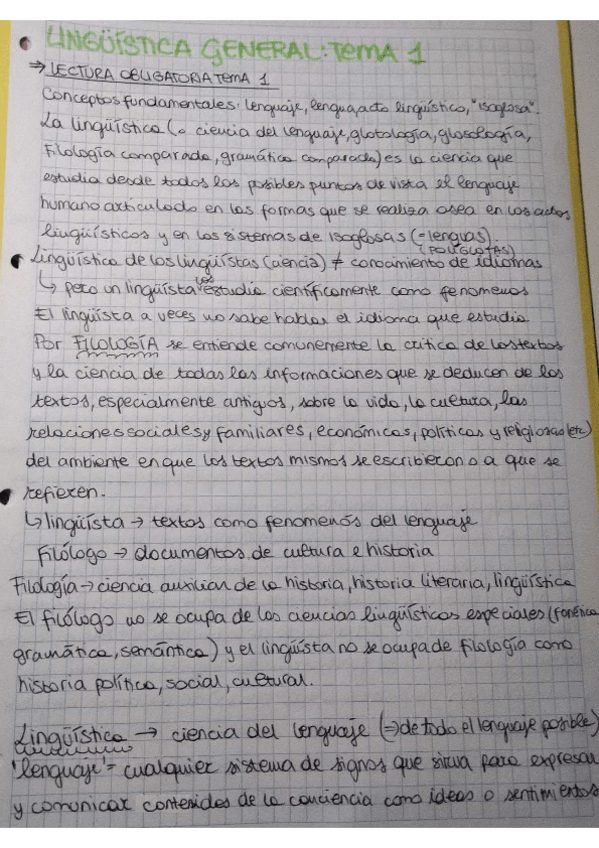 LINGÜÍSTICA GENERAL: Tema 1
→ LECTURA OBLIGATORIA TEMA 1
Conceptos fundamentales: lenguaje, lengua, acto lingüístico, "isoglosa".
La lingüística (o ciencia del lenguaje, glotología, glosología,
Filología comparada, gramática comparada) es la ciencia que
estudia desde todos los posibles puntos de vista el lenguaje
humano articulado en las formas que se realiza o sea en los actos
lingüísticos y en los sistemas de isoglosas (=lenguas).
(POLÍGLOTAS)
Lingüística de los lingüistas (ciencia) ≠ conocimiento de idiomas
↳ pero un lingüista los estudia científicamente como fenomenos
El lingüista a veces no sabe hablar el idioma que estudia.
Por FILOLOGÍA se entiende comunemente la crítica de los textos
y la ciencia de todas las informaciones que se deducen de los
textos, especialmente antiguos, sobre la vida, la cultura, las
relaciones sociales y familiares, económicas, políticas y religiosas (etc)
del ambiente en que los textos mismos se escribieron o a que se
refieren.
↳ lingüista → textos como fenomenos del lenguaje
Filólogo → documentos de cultura e historia
Filología → ciencia auxiliar de la historia, historia literaria, lingüística
El filólogo no se ocupa de las ciencias lingüísticas especiales (fonética
gramática, semántica) y el lingüista no se ocupa de filología como
historia política, social, cultural.
Lingüística → ciencia del lenguaje (⇒ de todo el lenguaje posible)
'lenguaje' = cualquier sistema de signos que sirva para expresar
y comunicar contenidos de la conciencia como ideas o sentimientos